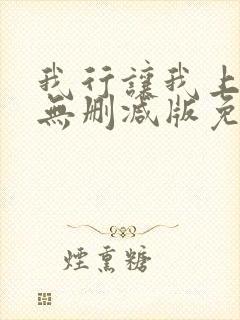 我行讓我上
無刪減版免
煙熏糖